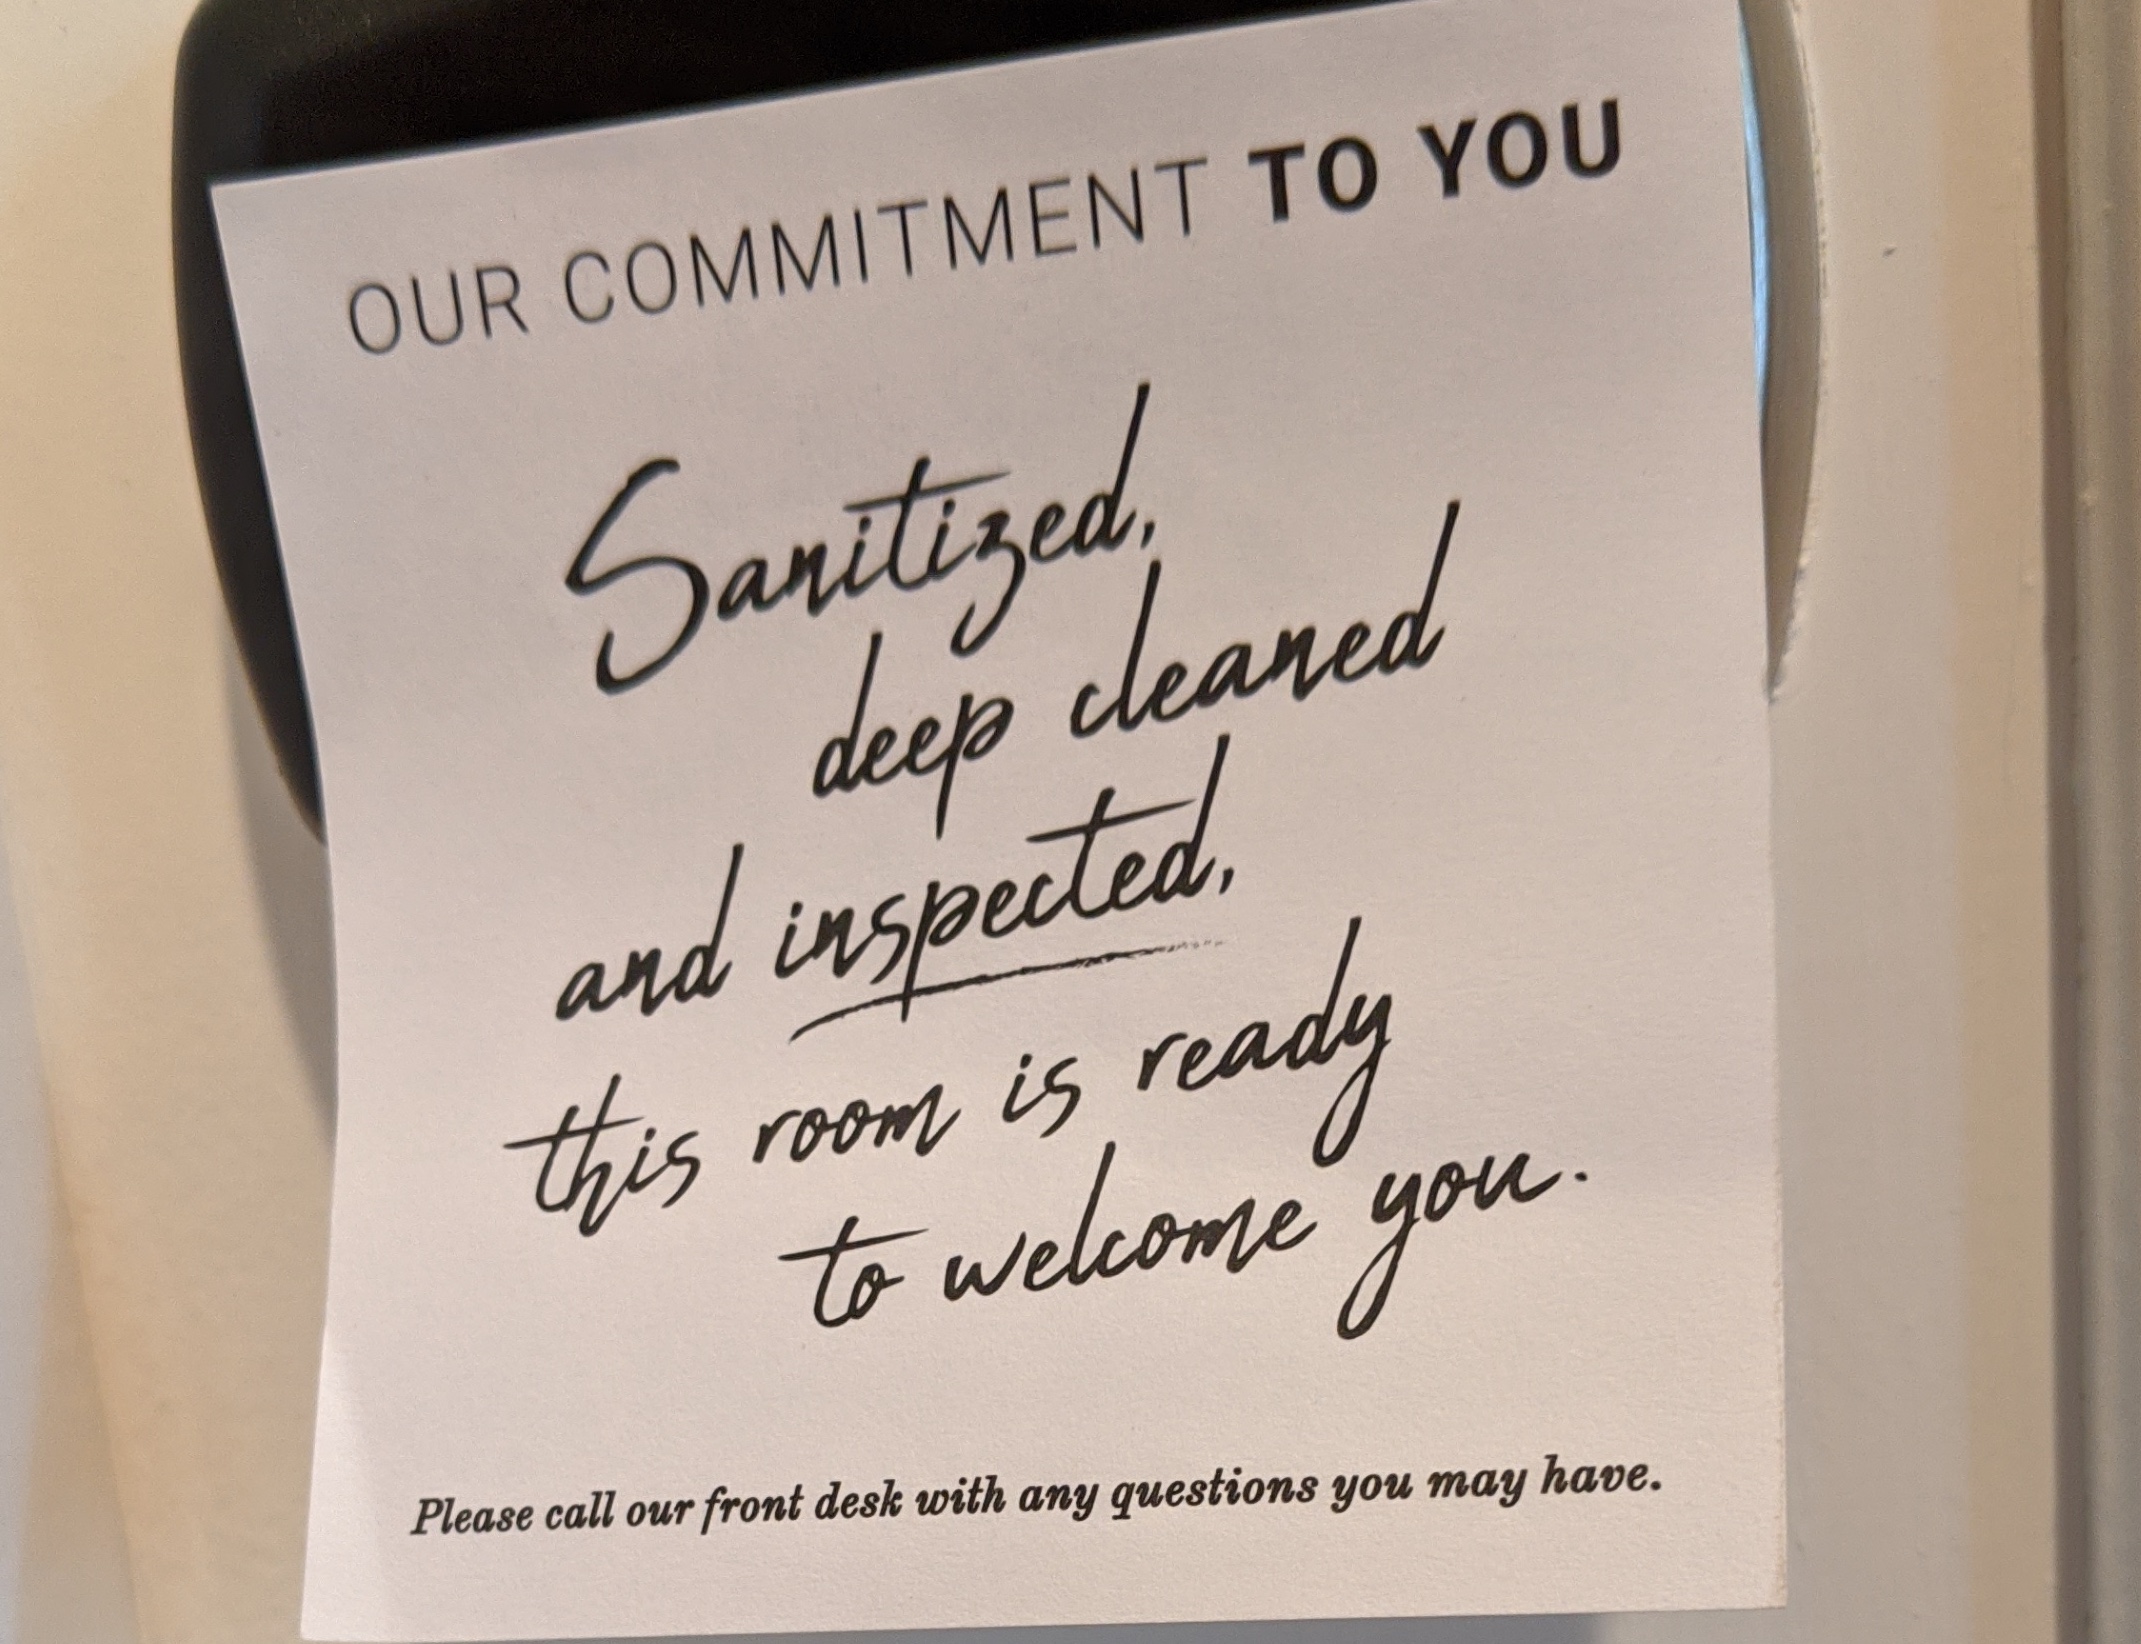 OUR COMMITMENT TO YOU
Sanitized,
deep cleaned
and inspected,
this room is ready
to welcome you.
Please call our front desk with any questions you may have.